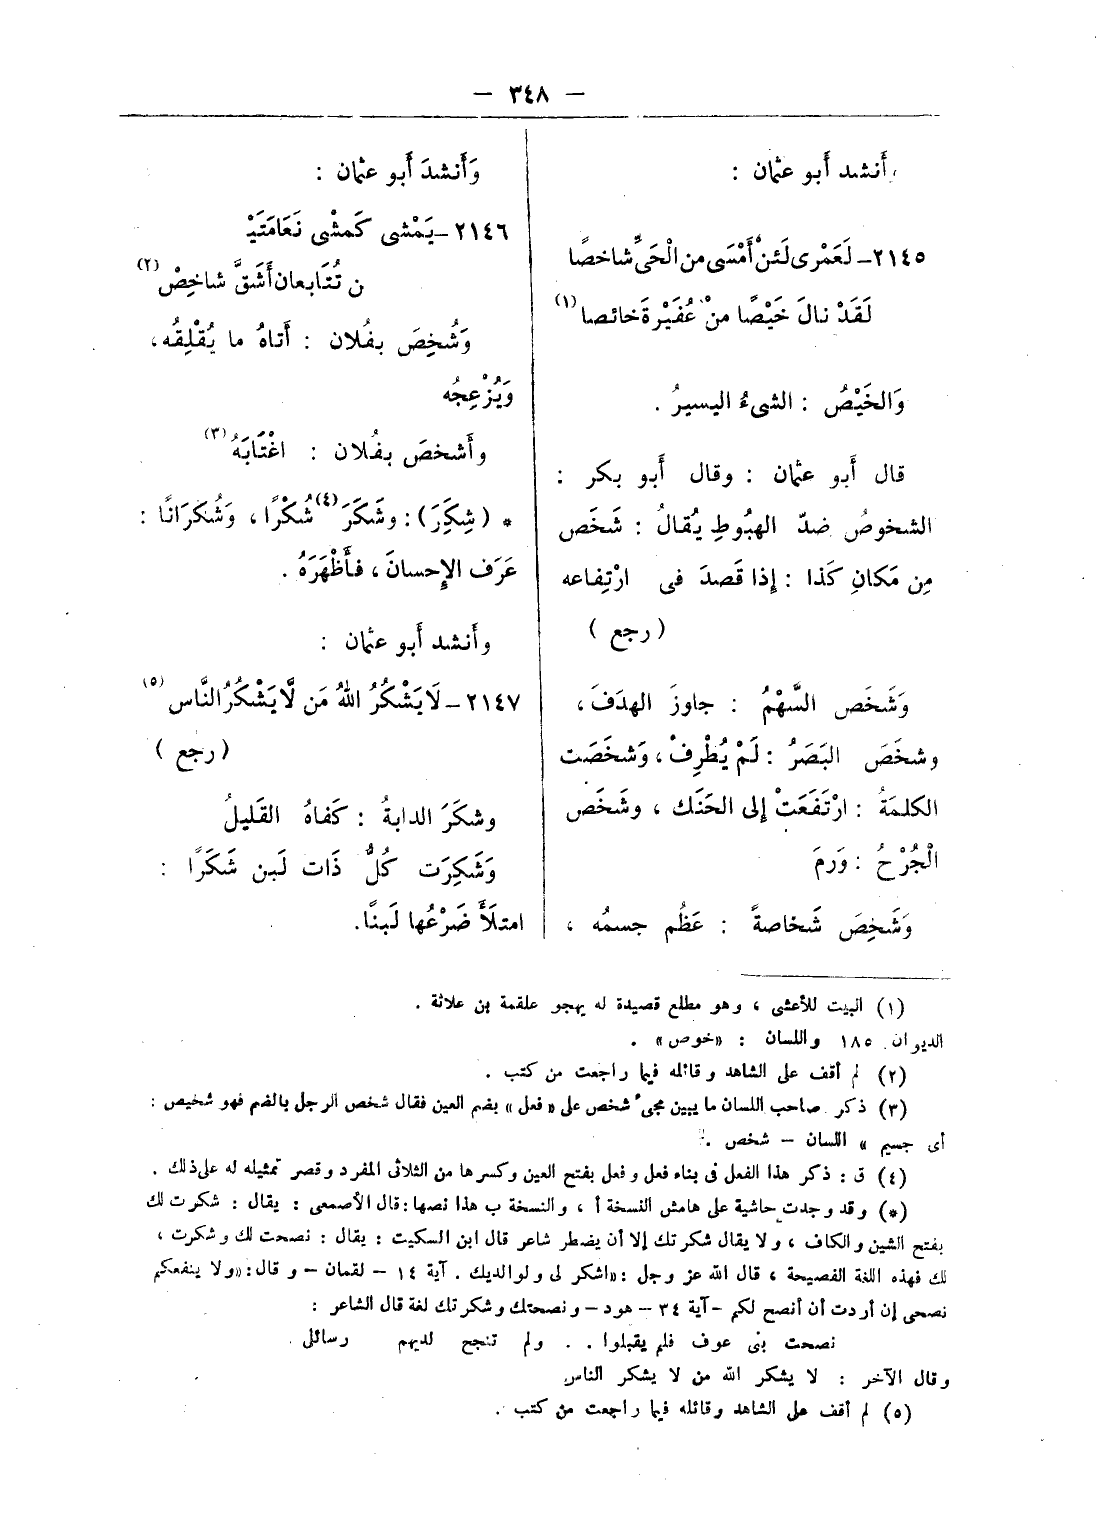 — ٣٤٨ —
وأَنشد أَبو عثمان :
٢١٤٥ – لَعَمْرِى لَئنْ أَمْسَى من الْحَىِّ شاخصًا
لَقَدْ نالَ خَيْصًا منْ عُفَيْرةَ خائصا (١)
وَالخَيْصُ : الشىءُ اليسيرُ .
قال أَبو عثمان : وقال أَبو بكر :
الشخوصُ ضدّ الهبُوطِ يُقالُ : شَخَص
مِن مَكانِ كَذا : إِذا قَصدَ فى ارْتِفاعه
( رجع )
وَشَخَص السَّهْمُ : جاوزَ الهدَفَ ،
وشخَصَ البَصَرُ : لَمْ يُطْرِفْ ، وَشخَصَت
الكلمَةُ : ارْتَفَعَتْ إِلى الحَنَك ، وشَخَص
الْجُرْحُ : وَرمَ
وَشَخِصَ شَخاصةً : عَظُم جسمُه ،
وَأَنشدَ أَبو عثمان :
٢١٤٦ – يَمْشى كَمشْى نَعَامَتَيْـ
ن تُتَابعان أَشَقَّ شاخِصْ (٢)
وَشُخِصَ بفُلان : أَتاهُ ما يُقْلِقُه ،
وَيُزْعِجُه
وأَشخصَ بفُلان : اغْتَابَهُ (٣)
* ( شكِرَ ) : وشَكَرَ (٤) شُكْرًا ، وَشُكرَانًا :
عَرَف الإِحسانَ ، فأَظْهَرَهُ .
وأَنشد أَبو عثمان :
٢١٤٧ – لَا يَشْكُرُ اللهُ مَن لَّا يَشْكُرُ النَّاس (٥)
( رجع )
وشكَرَ الدابةُ : كَفاهُ القَليلُ
وَشَكِرَت كُلُّ ذَات لَبن شَكَرًا :
امتلَأَ ضَرْعُها لَبنًا .
(١) البيت للأعشى ، وهو مطلع قصيدة له يهجو علقمة بن علاثة .
الديوان ١٨٥ واللسان : «خوص» .
(٢) لم أقف على الشاهد وقائله فيما راجعت من كتب .
(٣) ذكر صاحب اللسان ما يبين مجىء شخص على « فعل » بضم العين فقال شخص الرجل بالضم فهو شخيص :
أى جسيم » اللسان – شخص .
(٤) ق : ذكر هذا الفعل فى بناء فعل وفعل بفتح العين وكسرها من الثلاثى المفرد وقصر تمثيله له على ذلك .
(*) وقد وجدت حاشية على هامش النسخة أ ، والنسخة ب هذا نصها : قال الأصمعى : يقال : شكرت لك
بفتح الشين والكاف ، ولا يقال شكرتك إلا أن يضطر شاعر قال ابن السكيت : يقال : نصحت لك وشكرت ،
لك فهذه اللغة الفصيحة ، قال الله عز وجل : «اشكر لى ولوالديك . آية ١٤ – لقمان – وقال : «ولا ينفعكم
نصحى إن أردت أن أنصح لكم – آية ٣٤ – هود – ونصحتك وشكرتك لغة قال الشاعر :
نصحت بنى عوف فلم يقبلوا . . ولم تنجح لديهم رسائلى .
وقال الآخر : لا يشكر الله من لا يشكر الناس
(٥) لم أقف على الشاهد وقائله فيما راجعت من كتب .